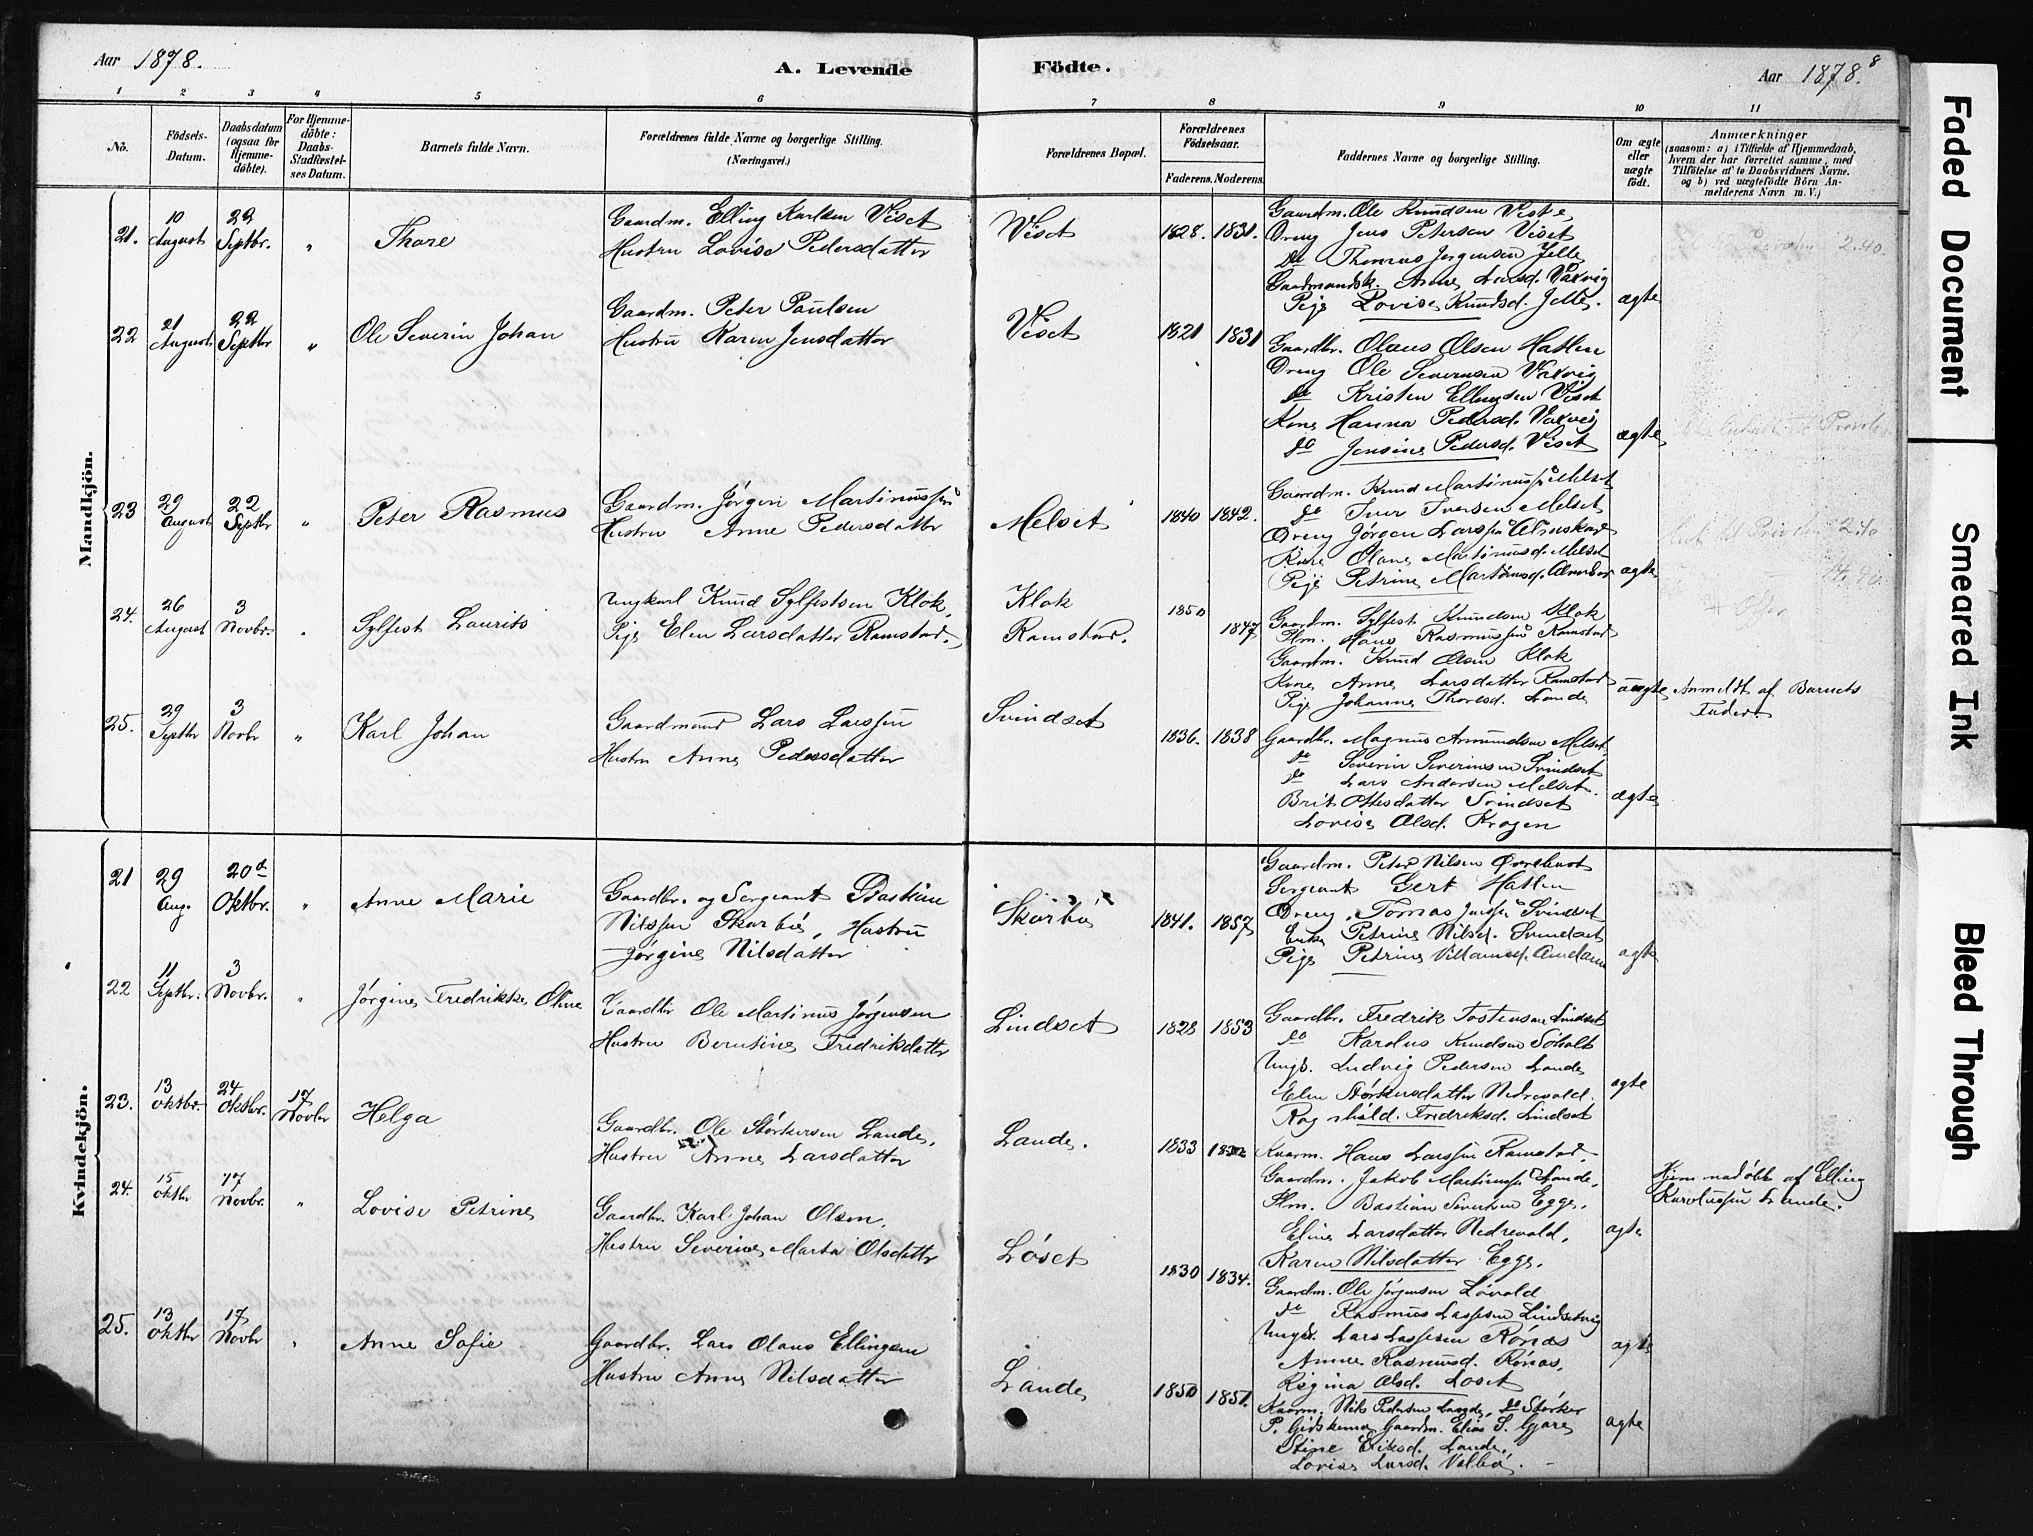 Aar 1878.
A. Levende Födte.
Aar 1878. 8
1 2 3 4 5 6 7 8 9 10 11
No.
Födsels-Datum.
Daabsdatum (ogsaa for Hjemme-döbte).
For Hjemme-döbte: Daabs-Stadfæstel-ses Datum.
Barnets fulde Navn.
Forældrenes fulde Navne og borgerlige Stilling.
(Næringsvei.)
Forældrenes Bopæl.
Forældrenes Födselsaar.
Faderens. Moderens.
Faddernes Navne og borgerlige Stilling.
Om ægte eller uægte födt.
Anmærkninger
(saasom: a) i Tilfælde af Hjemmedaab, hvem der har forrettet samme, med Tilföielse af to Daabsvidners Navne. og b) ved uægtefödte Börn Anmelderens Navn m. V.)
Mandkjön.
21. 10 August 22 Septbr. " Thore
Gaardm. Elling Karlsen Viset
Hustru Lovise Pedersdatter
Viset 1828. 1831.
Gaardm. Ole Knudsen Viset
Dreng Jens Petersen Viset
do Thomas Jørgensen Jelle
Gaardmandsk. Anne Larsd. Vaxvig
Pige Lovise Knudsd. Jelle. ægte
2.40.
22 21 August 22 Septbr " Ole Severin Johan
Gaardm. Peter Paulsen
Hustru Karen Jensdatter
Viset 1821 1831
Gaardbr. Olaus Olsen Hatlen
Dreng Ole Severinsen Vaxvig
do Kristen Ellingsen Viset
Kone Hanna Pedersd. Vaxvig
do Jensine Pedersd. Viset ægte
23 29 August 22 Septbr " Peter Rasmus
Gaardm. Jørgen Martinussen
Hustru Anne Pedersdatter
Melset 1840 1842.
Gaardm. Knud Martinuss. Melset
do Iver Iversen Melset
Dreng Jørgen Larssen
Kone Olane Martinusd. Melset
Pige Petrine Martinusd. ægte
2.40
24. 26 August 3 Novbr. " Sylfest Laurits
Ungkarl Knud Sylfestsen Klok,
Pige Elen Larsdatter Ramstad.
Klok
Ramstad. 1850 1847
Gaardm. Sylfest Knudsen Klok
Hans Rasmussen Ramstad
Gaardm. Knud Olsen Klok
Kone Anne Larsdatter Ramstad
Pige Johanne Thoresd. Lande uægte Anmeldt af Barnets
Fader.
25. 29 Septbr 3 Novbr " Karl Johan
Gaardmand Lars Larssen
Hustru Anne Pedersdatter
Svindset 1836. 1838
Gaardbr. Magnus Amundsen Melset
do Severin Severinsen Svindset
do Lars Andersen Melset.
Brit Ottesdatter Svindset
Lovise Olsd. Krogen ægte
Kvindekjön.
21 29 Aug. 20de Oktbr. " Anne Marie
Gaardbr. og Sergeant Bastian
Nilssen Skarbø, Hustru
Jørgine Nilsdatter
Skarbø 1841. 1857
Gaardm. Peter Nilsen
Sergeant Gert Hatlen
Dreng Tomas Svindset
Enke Petrine Nilsd. Svindset
Pige Petrine ægte
22 11 Septbr. 3 Novbr. " Jørgine Fredrikke Oline
Gaardbr Ole Martinus Jørgensen
Hustru Berntine Fredriksdatter
Lindset 1828 1853
Gaardbr. Fredrik Tostensen Lindset
do Karolus Knudsen Søholt
Ungk. Ludvig Pedersen Lande
Elen Størkersdatter Nedrevold.
Ragnhild Fredriksd. Lindset ægte
23. 13 Oktbr. 24 Oktbr. 17 Novbr Helga
Gaardbr. Ole Størkersen Lande,
Hustru Anne Larsdatter
Lande. 1833
Kaarm. Hans Larssen Ramstad.
Gaardm. Jakob Martinuss. Lande,
Bastian Sivertsen Egge.
Eline Larsdatter Nedrevold,
Karen Nilsdatter Egge. ægte
Hjemmedøbt af Elling
Karolussen Lande.
24. 15 Oktbr 17 Novbr. " Lovise Petrine
Gaardbr. Karl Johan Olsen,
Hustru Severine Marta Olsdatter
Løset 1830 1834.
Gaardm. Ole Jørgensen Løvold
do Rasmus Lassesen Lindsetvig
Ungk. Lars Lassesen Rønæs
Anne Rasmusd. Rønæs,
Regina Olsd. Løset ægte
25. 13 Oktbr 17 Novbr " Anne Sofie
Gaardbr. Lars Olaus Ellingsen
Hustru Anne Nilsdatter
Lande 1850 1851.
Kaarm. Nils Pedersen Lande, do Størker
P. Gidskemo Gaardm. Elias S. Gjære
Stine Eriksd. Lande,
Lovise Larsd. Valbø. ægte
Faded Document
Smeared Ink
Bleed Through